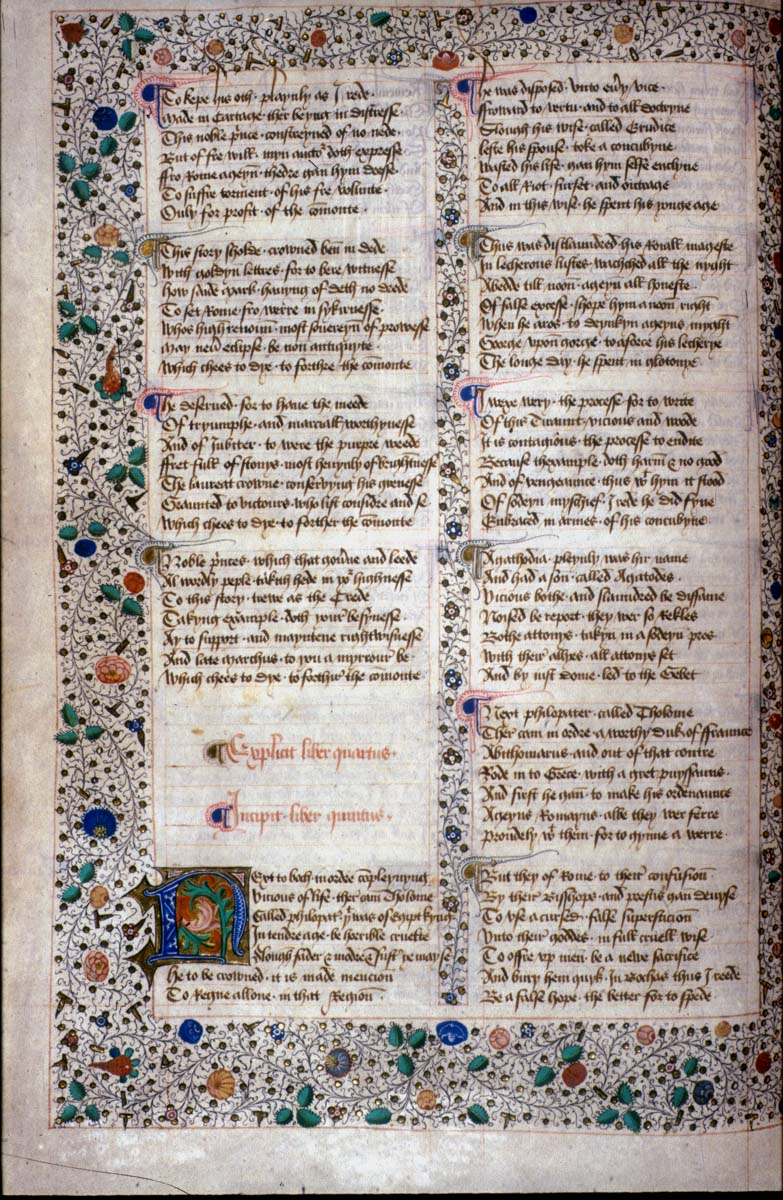 To kepe his oth · playnly as I rede ·
Made in Cartage · ther beyng in distresse
This noble prince · constreyned of no nede ·
But of fre will · myn auctor doth expresse
ffro Rome ageyn · thedre gan hym dresse
To suffre torment · of his fre volunte ·
Only for profit · of the comonte ·
This story sholde · crowned ben in dede
With goldyn lettres · for to bere witnesse
how saide Mark · havyng of deth no drede
To set Rome · fro werre in sykirnesse ·
Whos high renoun · most sovereyn of prowesse
May nevir eclipse · be non antiquyte ·
Which chees to dye · to forthre the comonte
He deserved · for to have the meede
Of tryumphe · and marciall worthynesse
And of Jubiter · to were the purpre weede
ffret full of stonys · most hevynly of brightnesse
The laureat crowne · conservyng his grenesse
Graunted to victours · who list considre and se
Which chees to dye · to forther the comonte
Noble princes · which that governe and leede
Al wordly peple · takith hede in your highnesse
To this story · trewe as the Crede
Takyng example · doth your besynesse ·
Ay to support · and mayntene rightwisnesse
And late Marchus · to you a myrrour be
Which chees to dye · to forthir the comonte
Explicit liber quartus ·
Incipit · liber quintus ·
Next to boch· in ordre copleynyng
Vicious of life · ther cam Tholome
Called philopater yt was of egipt kyng
In tendre age · be horrible cruelte
Slough fader & modre & sustr ye may se
He to be crowned · it is made mencion
To Regne allone · in that Region ·
He was disposed · unto every vice ·
ffroward to vertu · and to all doctryne
Slough his wife · called Erudice
lefte his spouse · toke a concubyne
Wasted his life · gan hym selfe enclyne
To all Riot · surfet · and outrage
And in this wise · he spent his yonge age
Thus was disclaundred · his Roiall mageste
In lecherous lustes · wacched all the nyght
Abedde till noon · ageyn all honeste ·
Of false excesse · shope hym anoon right
When he aros · to drynkyn ageyns myght
Gorge upon gorge · to aforce his lecherye
The longe day · he spent in glotonye ·
I wexe wery · the processe for to write
Of this Tiraunt · vicious and woode
It is contagious · the processe to endite
Because thexample · doth harm & no good
And of vengeaunce · thus with hym it stood
Of sodeyn myschief · I rede he did fyne
Enbraced in armes · of his concubyne ·
Agathodia · pleynly was hir name
And had a son · called Agatodes ·
Vicious bothe · and slaundred be diffame
Noised be report · they wer so rekles
Bothe attonys · takyn in a sodeyn pres
With their allyes · all attonys set
And by iust dome · led to the Gebet
Next philopater · called Tholome
Ther cam in ordre · a worthy Duk of ffraunce
Abithomarus · and out of that contre
Rode in to Grece · with a gret puyssaunce ·
And first he gan · to make his ordenaunce
Ageyns Romayns · albe they wer ferce
Proudely with them · for to gynne a werre ·
But they of Rome · to their confusion ·
By their Bisshops · and prestis gan devyse
To use a cursed · false supersticion
Unto their goddes · in full cruell wise
To offre up men · be a newe sacrifice
And bury hem quyk · In Bochas thus I reede
Be a false hope · the better for to spede ·